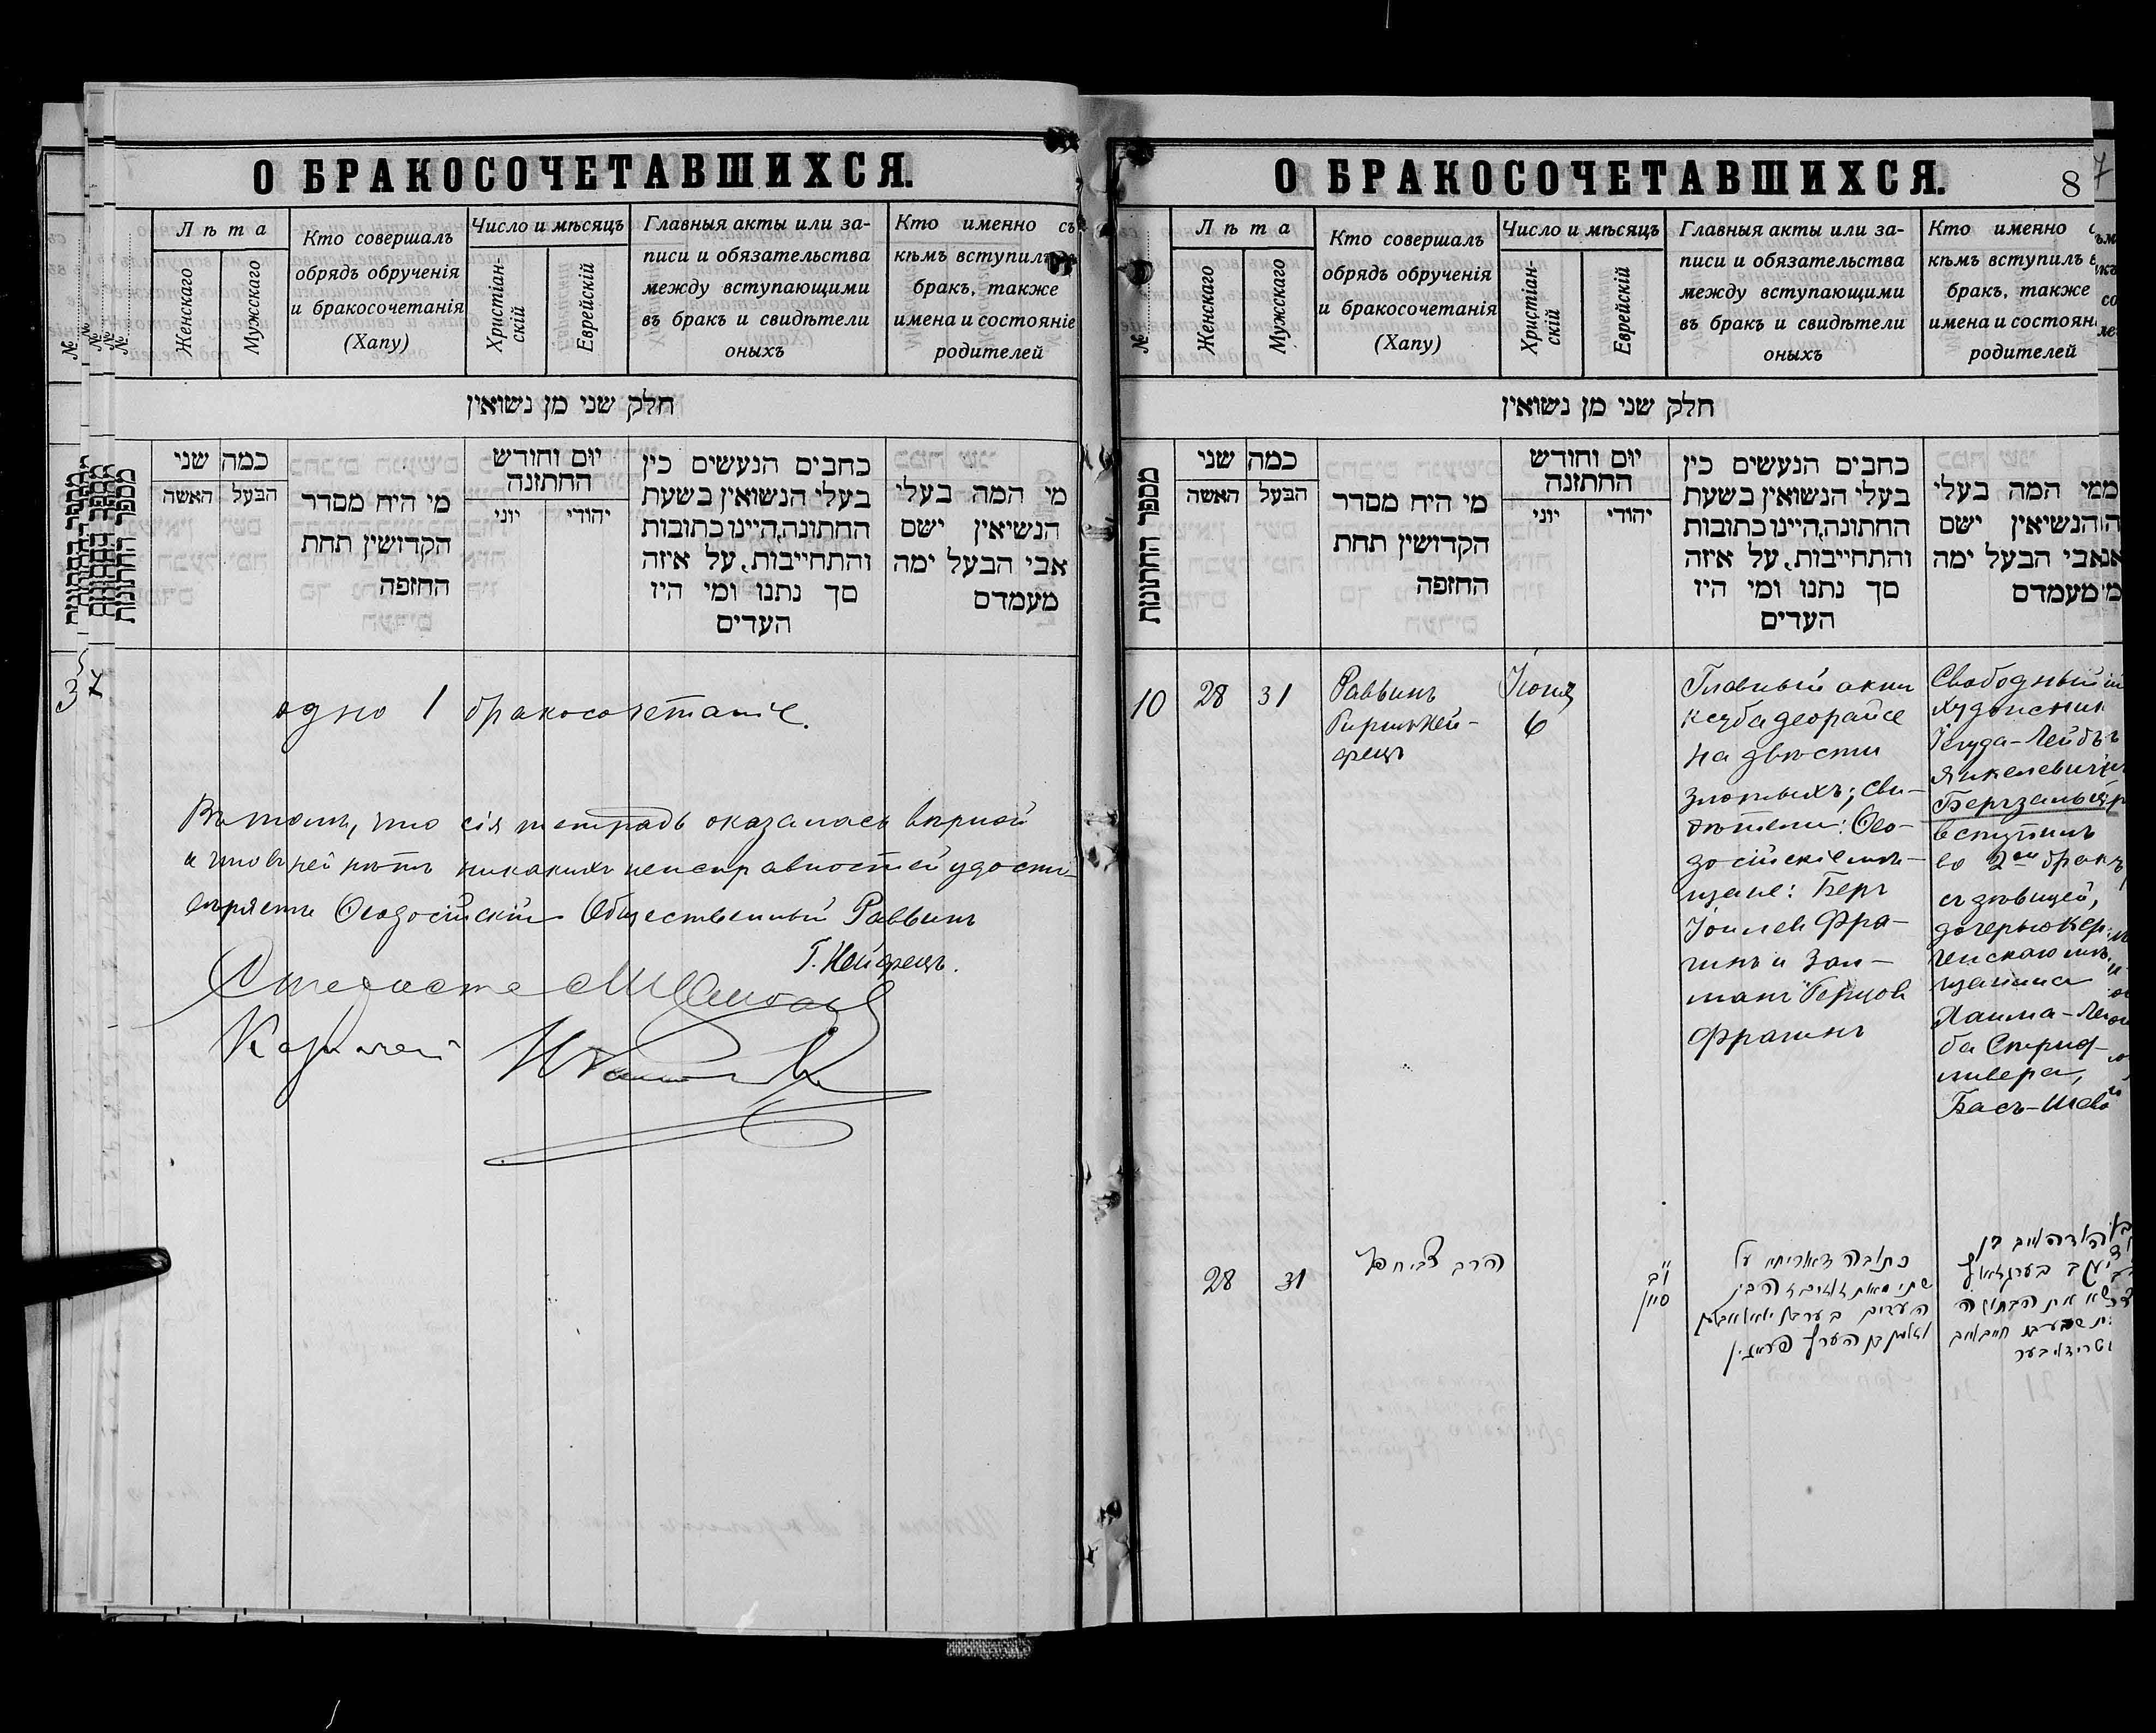 О БРАКОСОЧЕТАВШИХСЯ.
№
Лѣта
Женскаго
Мужскаго
Кто совершалъ
обрядъ обрученія
и бракосочетанія
(Хапу)
Число и мѣсяцъ
Христіан-
скій
Еврейскій
Главныя акты или за-
писи и обязательства
между вступающими
въ бракъ и свидѣтели
оныхъ
Кто именно съ
кѣмъ вступилъ
бракъ, также
имена и состояніе
родителей
חלק שני מן נשואין
מספר החתונות
כמה שני
האשה הבעל
מי היח מסדר
הקדושין תחת
החזפה
יום וחודש
החתזנה
יוני יהודי
כחבים הנעשים כין
בעלי הנשואין בשעת
החתונה, היינו כתובות
והתחייבות, על איזה
סך נתנו ומי היז
העדים
מי המה בעלי
הנשיאין ישם
אבי הבעל ימה
מעמדם
3
7
одно 1 бракосочетаніе.
Въ томъ, что сія тетрадь оказалась вѣрной
и что въ ней нѣтъ никакихъ неисправностей удосто-
вѣряетъ Ѳеодосійскій Общественный Раввинъ
Г. Нейфецъ.
Староста
Казначей
О БРАКОСОЧЕТАВШИХСЯ.
8
7
№
Лѣта
Женскаго
Мужскаго
Кто совершалъ
обрядъ обрученія
и бракосочетанія
(Хапу)
Число и мѣсяцъ
Христіан-
скій
Еврейскій
Главныя акты или за-
писи и обязательства
между вступающими
въ бракъ и свидѣтели
оныхъ
Кто именно
кѣмъ вступилъ
бракъ, также
имена и состоян
родителей
חלק שני מן נשואין
מספר החתונות
כמה שני
האשה הבעל
מי היח מסדר
הקדושין תחת
החזפה
יום וחודש
החתזנה
יוני יהודי
כחבים הנעשים כין
בעלי הנשואין בשעת
החתונה, היינו כתובות
והתחייבות, על איזה
סך נתנו ומי היז
העדים
מי המה בעלי
הנשיאין ישם
אבי הבעל ימה
מעמדם
10
28
31
Раввинъ
Гиршъ Ней-
фецъ
Іюня
6
Главный актъ
ксуба деорайсе
на двѣсти
злотыхъ; сви-
дѣтели: Ѳео-
досійскіе мѣ-
щане: Беръ
Іоилевъ Фра-
гинъ и Зал-
манъ Берцовъ
Фрагинъ
Свободный
художник
Іегуда-Лейбъ
Янкелевичъ
вступилъ
во 2ой бракъ
съ дѣвицей,
дочерью Кер-
ченскаго мѣ-
щанина
Хаима-Лей-
ба Стриф-
Басъ-Шево
28
31
הרב
י"ב
סיון
כתובה דאורייתא על
שתי מאות זוזים
העדים
יעקב
את הבתולה